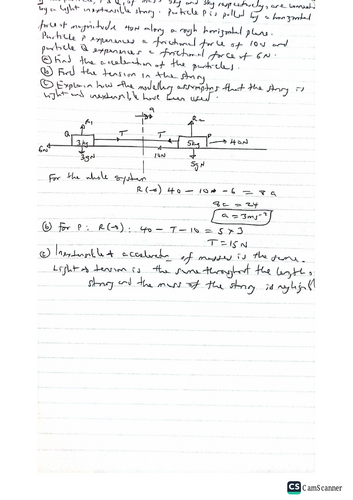 P & Q, of mass 5kg and 3kg respectively, are connected
by a light inextensible string. Particle P is pulled by a horizontal
force of magnitude 40N along a rough horizontal plane.
Particle P experiences a frictional force of 10N and
particle Q experiences a frictional force of 6N.
(a) Find the acceleration of the particles.
(b) Find the tension in the string
(c) Explain how the modelling assumptions that the string is
light and inextensible have been used.
a
R1 R2
Q T T P
3kg 5kg → 40N
6N 10N
3gN 5gN
For the whole system
R(→) 40 - 10 - 6 = 8a
8a = 24
a = 3ms⁻²
(b) For P: R(→): 40 - T - 10 = 5 × 3
T = 15N
(c) Inextensible → acceleration of masses is the same.
Light → tension is the same throughout the length of
string and the mass of the string is negligible
CS CamScanner